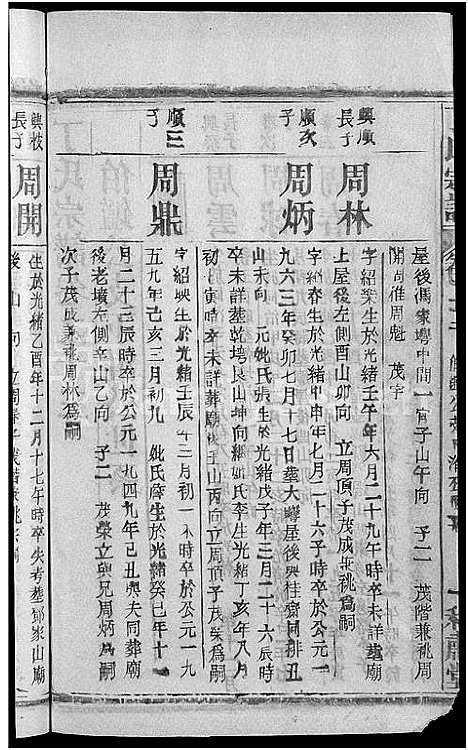 屋後馮家塆中間一宮子山午向　子二　茂階兼祧周
開尚維周魁　茂宇
興順長子
周林
字紹榮生於光緒壬午年六月二十九午時卒未詳葬廟
上屋後左側酉山卯向　立周頂子茂成兼祧爲嗣
順次子
周炳
字紹春生於光緒甲申年七月二十六子時卒於公元一
九六三年癸卯七月十七日葬大塆屋後與桂齋同排丑
山未向　元妣氏張生於光緒戊子年三月二十六辰時
卒未詳葬乾塲艮山坤向繼妣氏李生光緒丁亥年八月
初寅時卒未詳葬廟子山丙向立周頂子茂榮爲嗣
順三子
周鼎
字紹映生於光緒壬辰年三月初一時卒於公元一九
五九年己亥三月初九　妣氏薛生於光緒癸巳年十一
月二十三辰時卒於公元一九四九年己丑與夫同葬廟
後老墳左側辛山乙向　子二　茂榮立與兄周炳爲嗣
次子茂成兼祧周林爲嗣
興枝長子
周開
生於光緒乙酉年十二月十七午時卒失考葬鄧家山廟